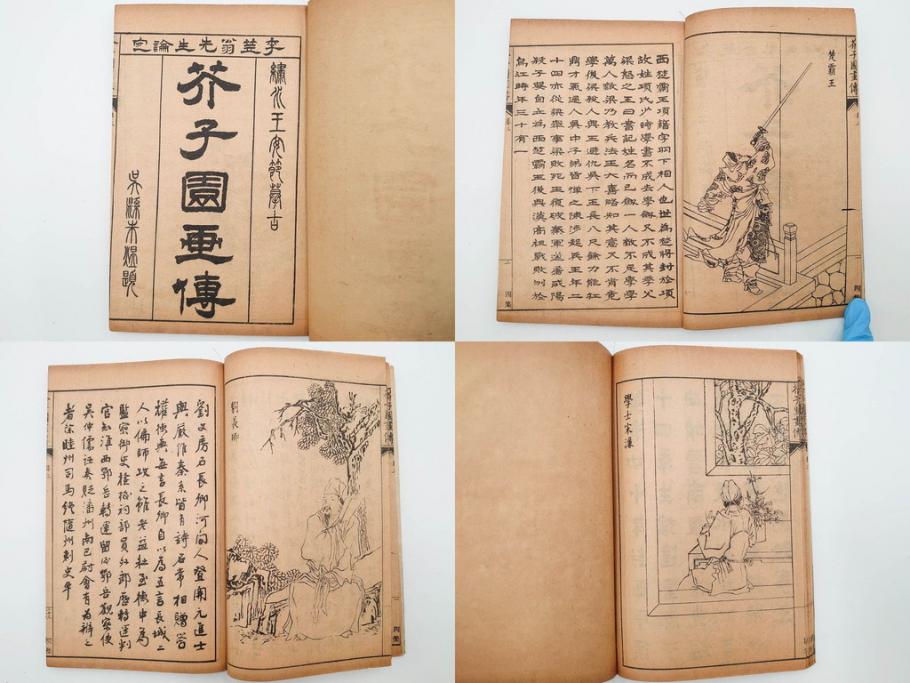 李笠翁先生論定
繡水王安節摹古
芥子園畫傳
芥子園畫傳
楚霸王
四集
西楚霸王項籍字羽下相人也世為楚將封於項
故姓項氏少時學書不成去學劍又不成其季父
梁怒之王曰書記姓名而已劍一人敵不足學學
萬人敵梁乃教兵法王大喜略知其意又不肯竟
學後梁殺人與王避仇吳下王長八尺餘力能扛
鼎才氣過人吳中子弟皆憚之陳涉起兵王年二
十四亦從梁舉事梁敗死王復破秦軍盡屠咸陽
殺子嬰自立為西楚霸王後與漢高祖戰敗刎於
烏江時年三十有一
四集
芥子園畫傳
劉長卿
四集
劉文房名長卿河間人登開元進士
與嚴維秦系皆有詩名常相贈答
權德輿每言長卿自以為五言長城二
人以偏師攻之雖老益壯至德中為
監察御史檢校祠部員外郎歷轉運判
官知淮西鄂岳轉運留後鄂岳觀察使
吳仲孺誣奏貶潘州南巴尉會有為辯之
者除睦州司馬終隨州刺史卒
學士宋濂